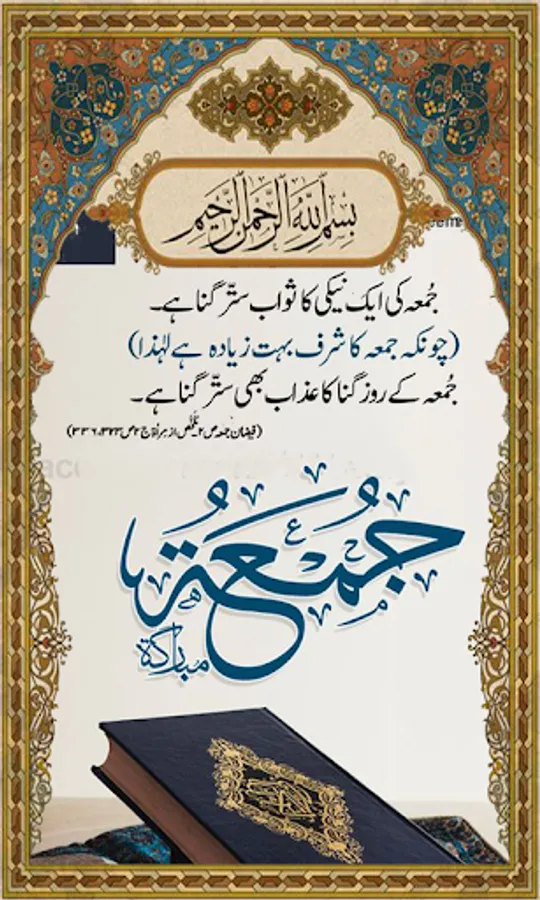 بسم الله الرحمن الرحيم
جُمعہ کی ایک نیکی کا ثواب ستّر گنا ہے۔
(چونکہ جمعہ کا شرف بہت زیادہ ہے لہٰذا)
جُمعہ کے روز گنا کا عذاب بھی ستّر گنا ہے۔
(فیضان جمعہ ص۲۔ملخص از مراٰۃ ج۲ص۳۲۳،۳۳۶)
جُمُعَة
مباركة